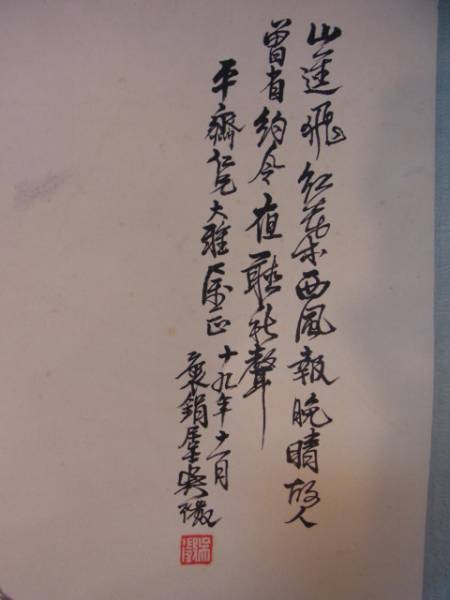 山逕飛紅葉西風報晚晴故人
曾有約今夜聽秋聲
平齋仁兄大雅屬正
十九年十一月
袌鋗居士吳徵